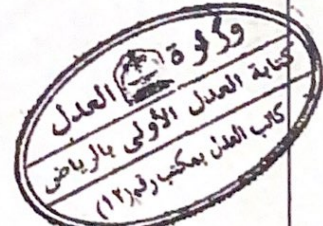 وزارة العدل
كتابة العدل الأولى بالرياض
كاتب العدل بمكتب رقم (١٢)